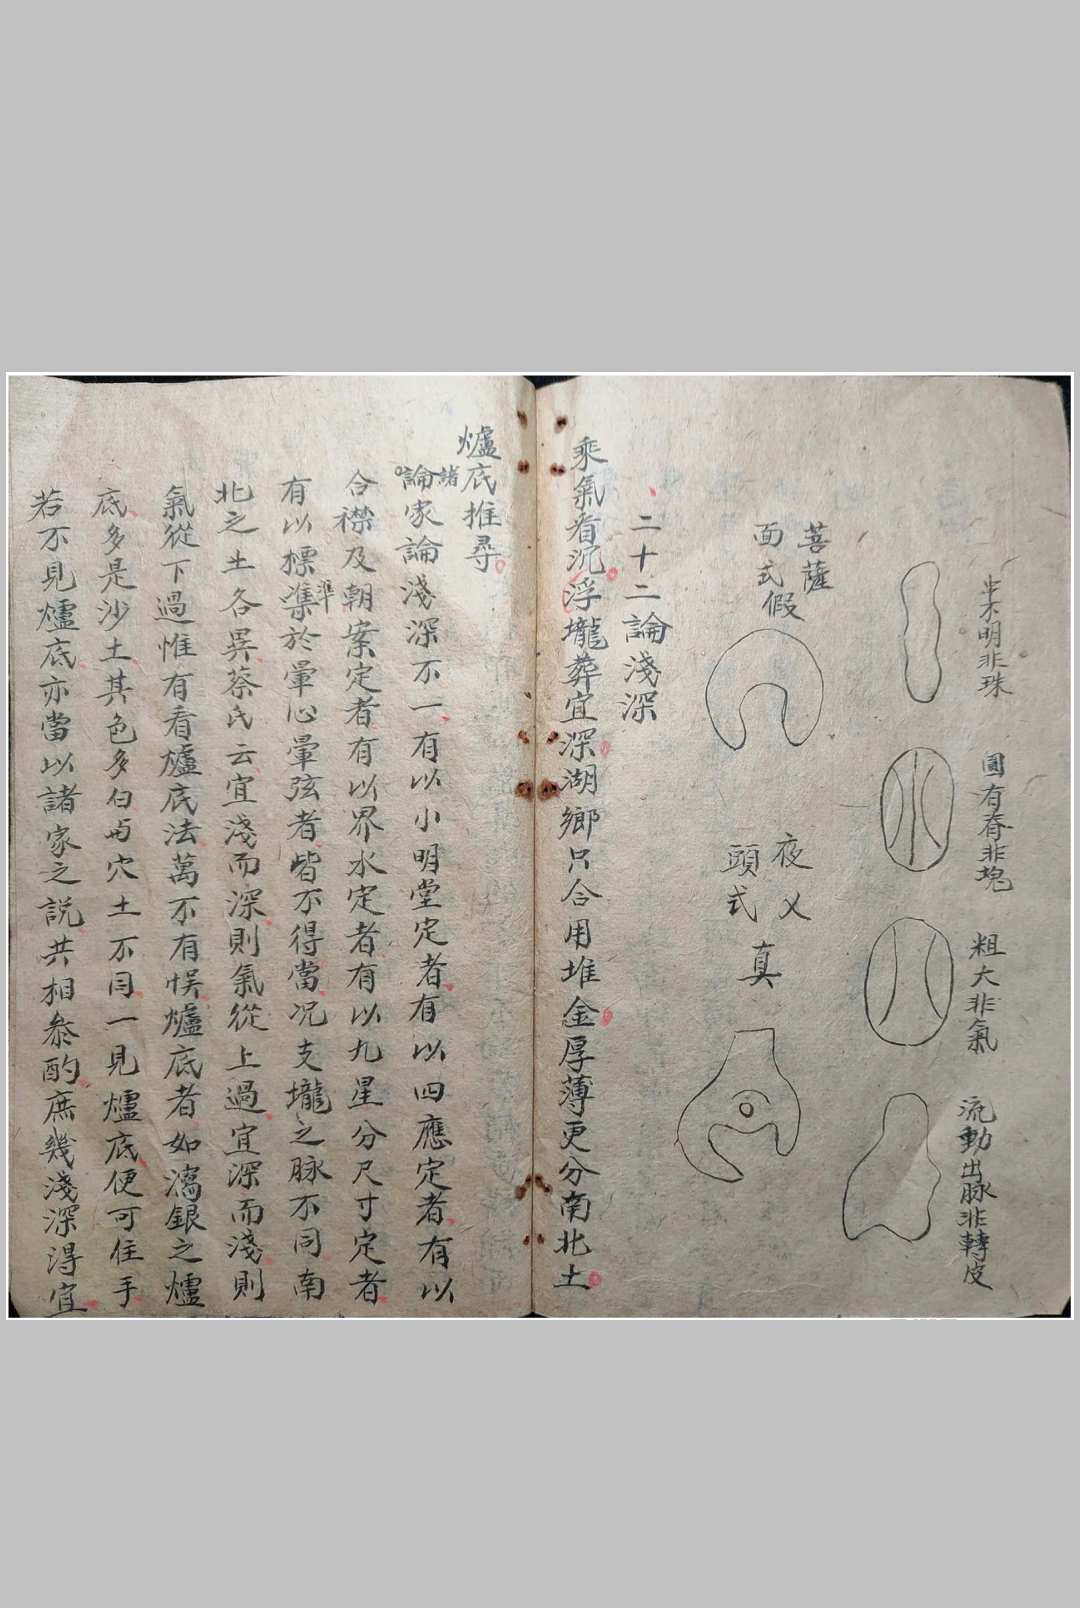 半不明非珠
圓有脊非塊
粗大非氣
流動出脉非轉皮
菩薩
面式假
夜乂
頭式
真
二十二論淺深
乘氣看沉浮壠葬宜深湖鄉只合用堆金厚薄更分南北土
爐底推尋
諸
論家論淺深不一有以小明堂定者有以四應定者有以
合襟及朝案定者有以界水定者有以九星分尺寸定者
有以標準於暈心暈弦者皆不得當况支壠之脉不同南
準
北之土各異蔡氏云宜淺而深則氣從上過宜深而淺則
氣從下過惟有看爐底法萬不有悞爐底者如瀉銀之爐
底多是沙土其色多白与穴土不同一見爐底便可住手
若不見爐底亦當以諸家之説共相叅酌庶幾淺深得宜